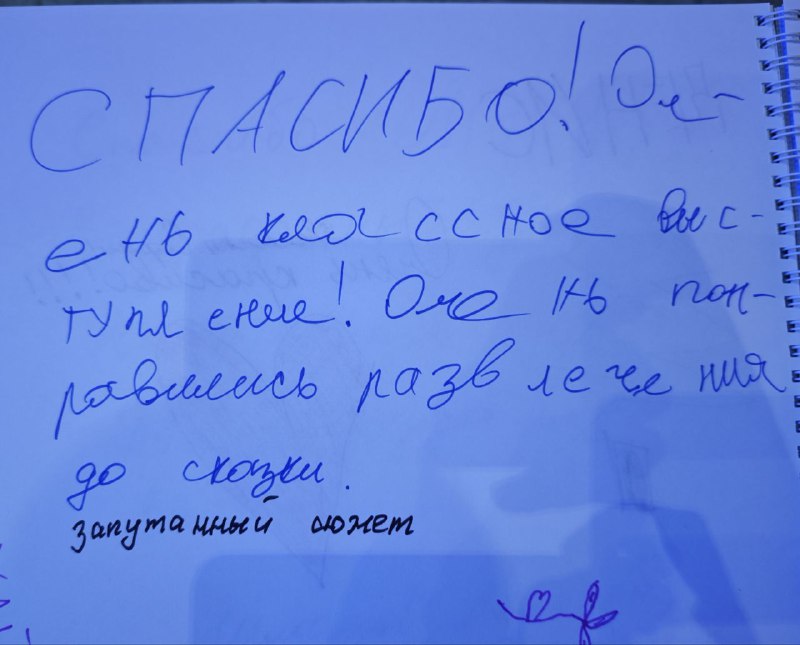 СПАСИБО! Оч-
ень классное выс-
тупление! Очень пон-
равились развлечения
до сказки.
запутанный сюжет